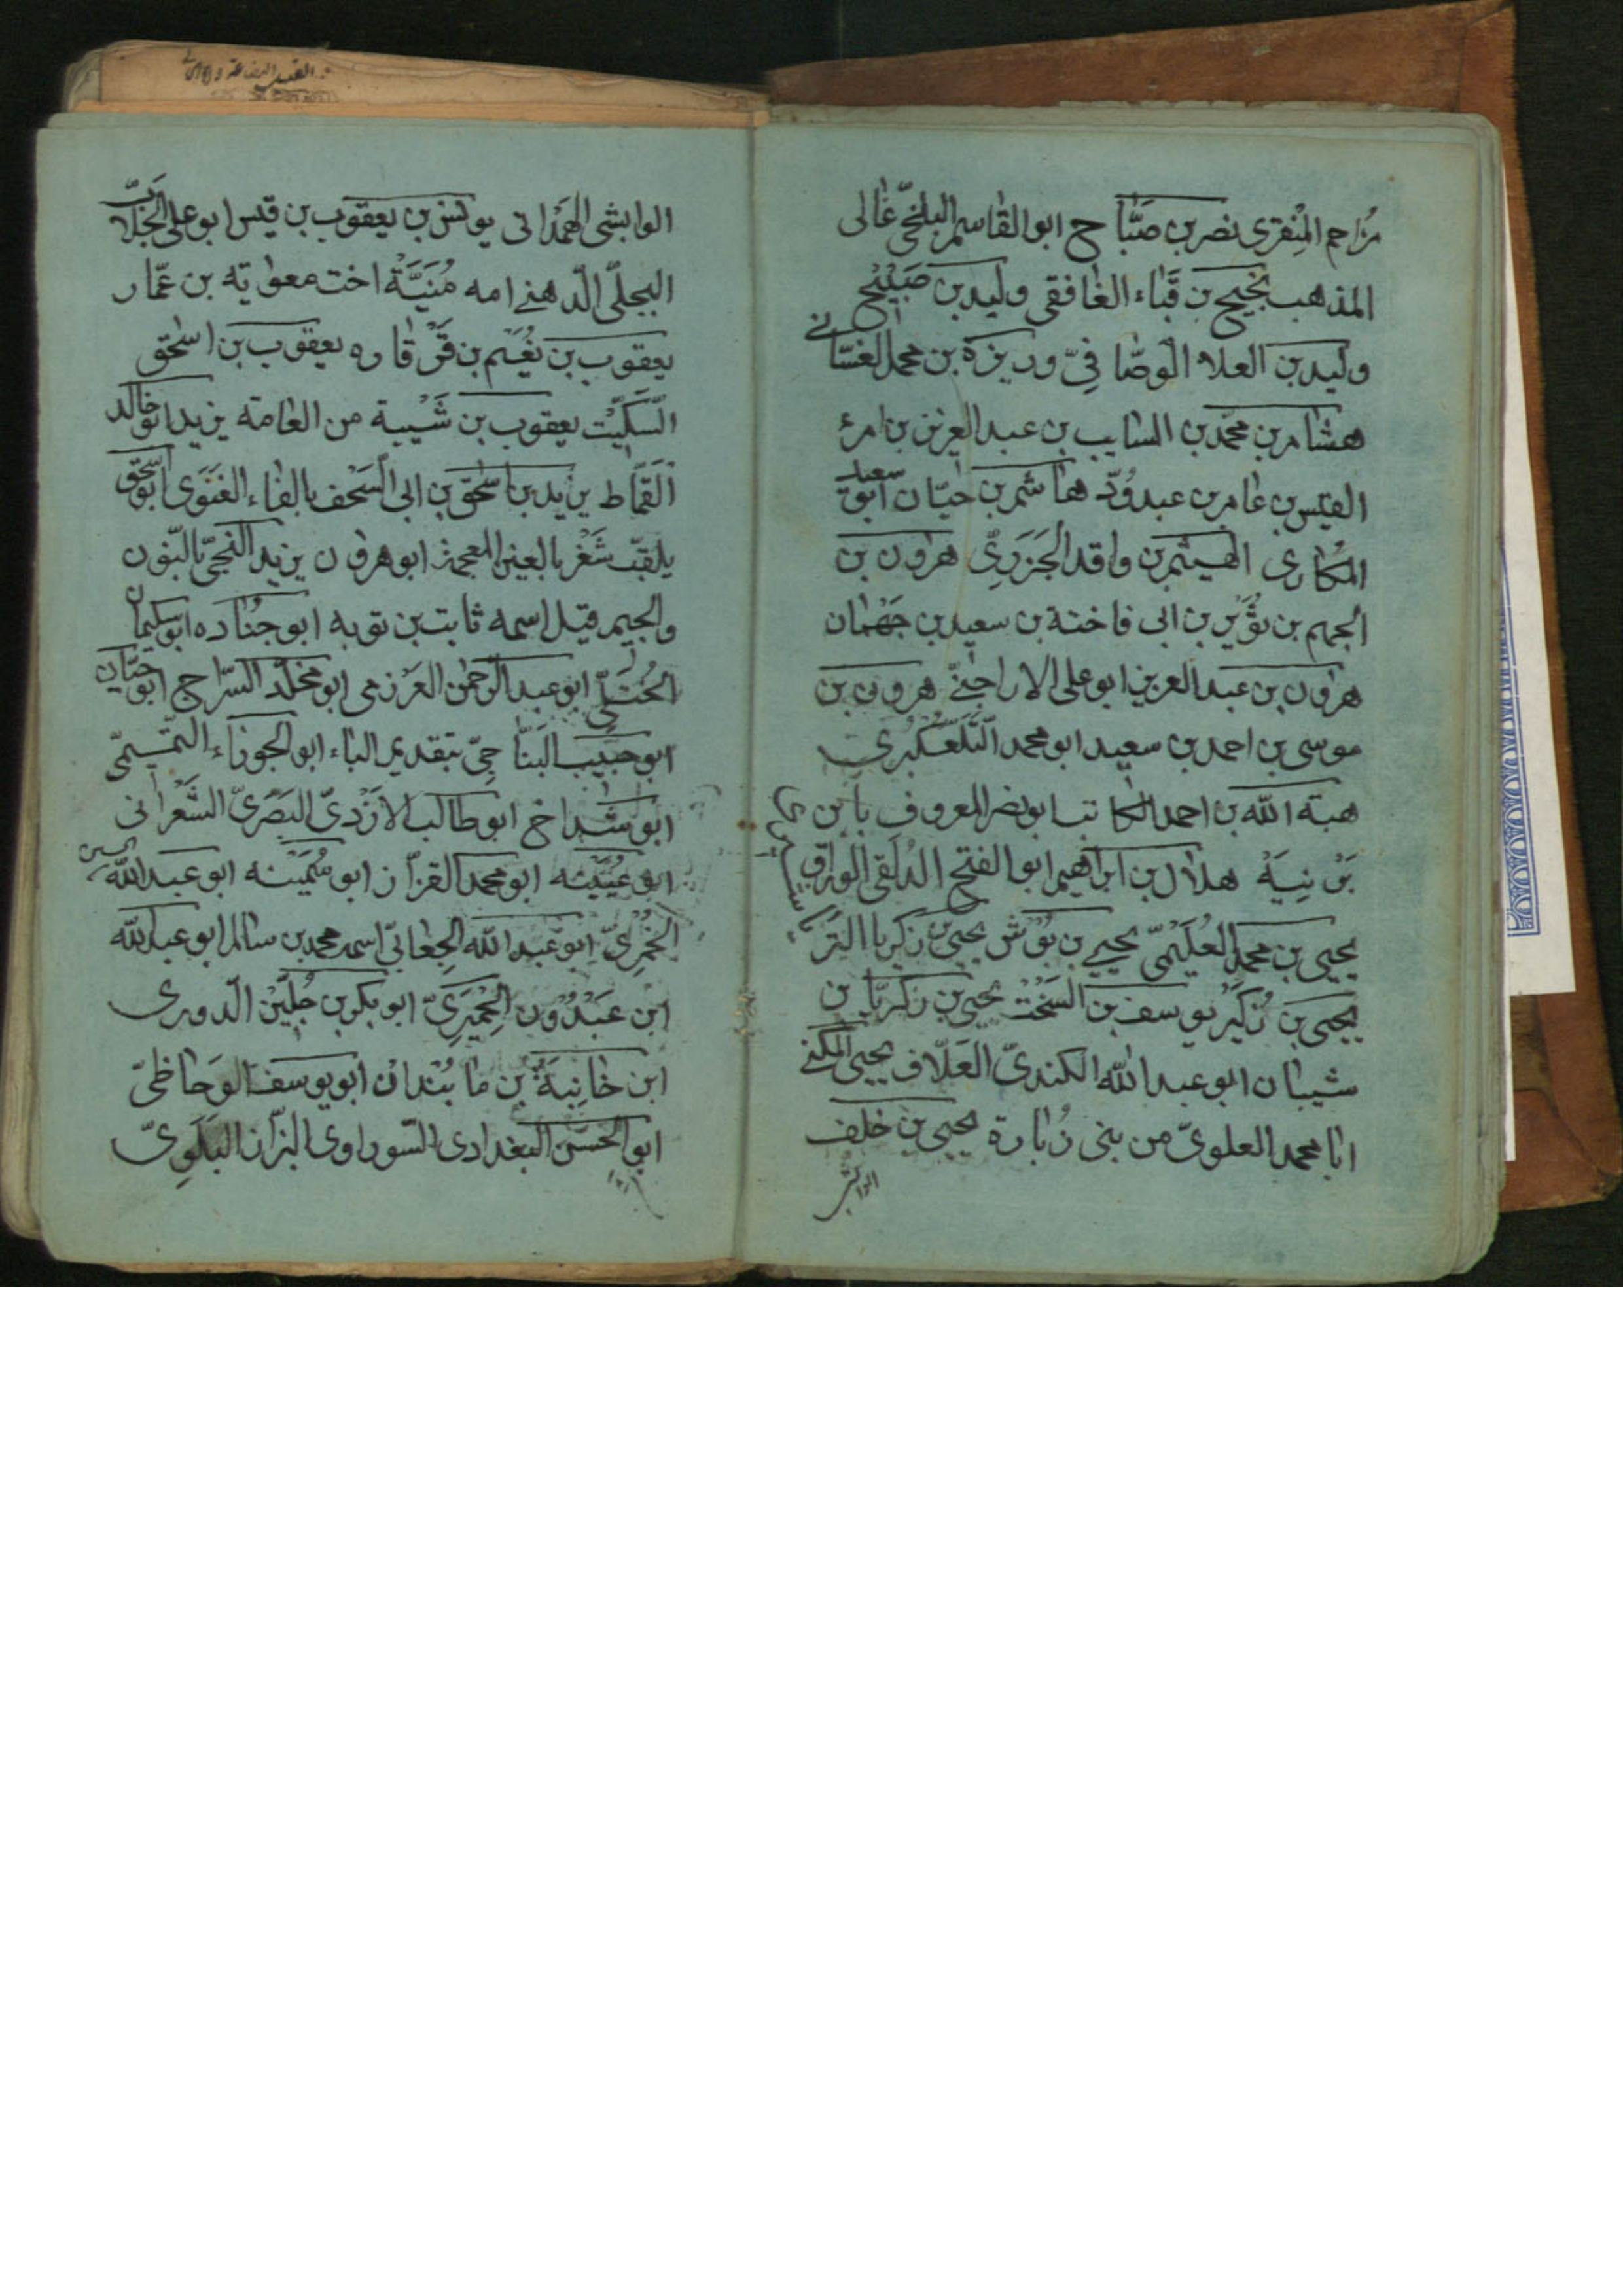 مُزاحم المِنْقري نصر بن صَبَّاح ابو القاسم البلخيّ غالى
المذهب نجيح بن قَباء الغافقى وليد بن صَبِيْح
وليد بن العلا الوصّافىّ وريزة بن محمد الغسّانے
هشام بن محمّد بن السايب بن عبد العزيز بن امرء
القيس بن عامر بن عبد وُدّ هاشم بن حيّان ابو سعيد
المكارى الهيثم بن واقد الجَزَرِىّ هرون بن
الجهم بن ثُوَيْر بن ابى فاختة بن سعيد بن جَهْمان
هرون بن عبد العزيز ابو على الاراجنے هرون بن
موسى بن احمد بن سعيد ابو محمد التَّلَّعُكْبرى
هبة الله بن احمد الكاتب ابو نصر المعروف بابن
بَرْنِيَةْ هلال بن ابراهيم ابو الفتح الدُلَفى الورّاق
يحيى بن محمد العُلَيْمىّ يحيى بن بَوْش يحيى بن زكريا التر
يحيى بن زُكَيْر يوسف بن السَّخْت يحيى بن زكريّا بن
شيبان ابو عبد الله الكندىّ العَلّاف يحيى المكنے
ابا محمد العلوىّ من بنى زُبارة يحيى بن خلف
الوابشى الهَمْدانى يونس بن يعقوب بن قيس ابو على الجلاب
البجلىّ الدهنے امه مُنَيَّةْ اخت معوية بن عمّار
يعقوب بن نُعَيْم بن قَرْقاره يعقوب بن اسحق
السِّكِّيْت يعقوب بن شَيْبة من العامة يزيد ابو خالد
القَمّاط يزيد بن اسحق بن ابى السَّخف بالفاء الغَنَوى ابو اسحق
يلقب شَغَر بالغين المعجمة ابو هرون يزيد النجىّ بالنون
والجيم قيل اسمه ثابت بن توبه ابو جُنَاده ابو سليمان
ابو عبد الرحمن العَرْزمى ابو مخلّد السرّاج ابو حيّان
ابو حبيب البَناجىّ بتقديم الباء ابو الجوزاء التَّميمىّ
ابو شداخ ابو طالب الازْدىّ البَصْرىّ الشَّعْرانى
ابو عُيَيْنه ابو محمد القزّاز ابو سُمَيْنه ابو عبد الله
ابو عبد الله الجعانىّ اسمه محمد بن سالم ابو عبد الله
ابن عَبْدُوْن الحِمْيَرىّ ابو بكر بن جُلَّيْن الدورى
ابن خانِبَةْ بن مابُنْداذ ابو يوسف الوَحاظىّ
ابو الحسن البغدادى السّوراوى البزّاز البَلَوِىّ